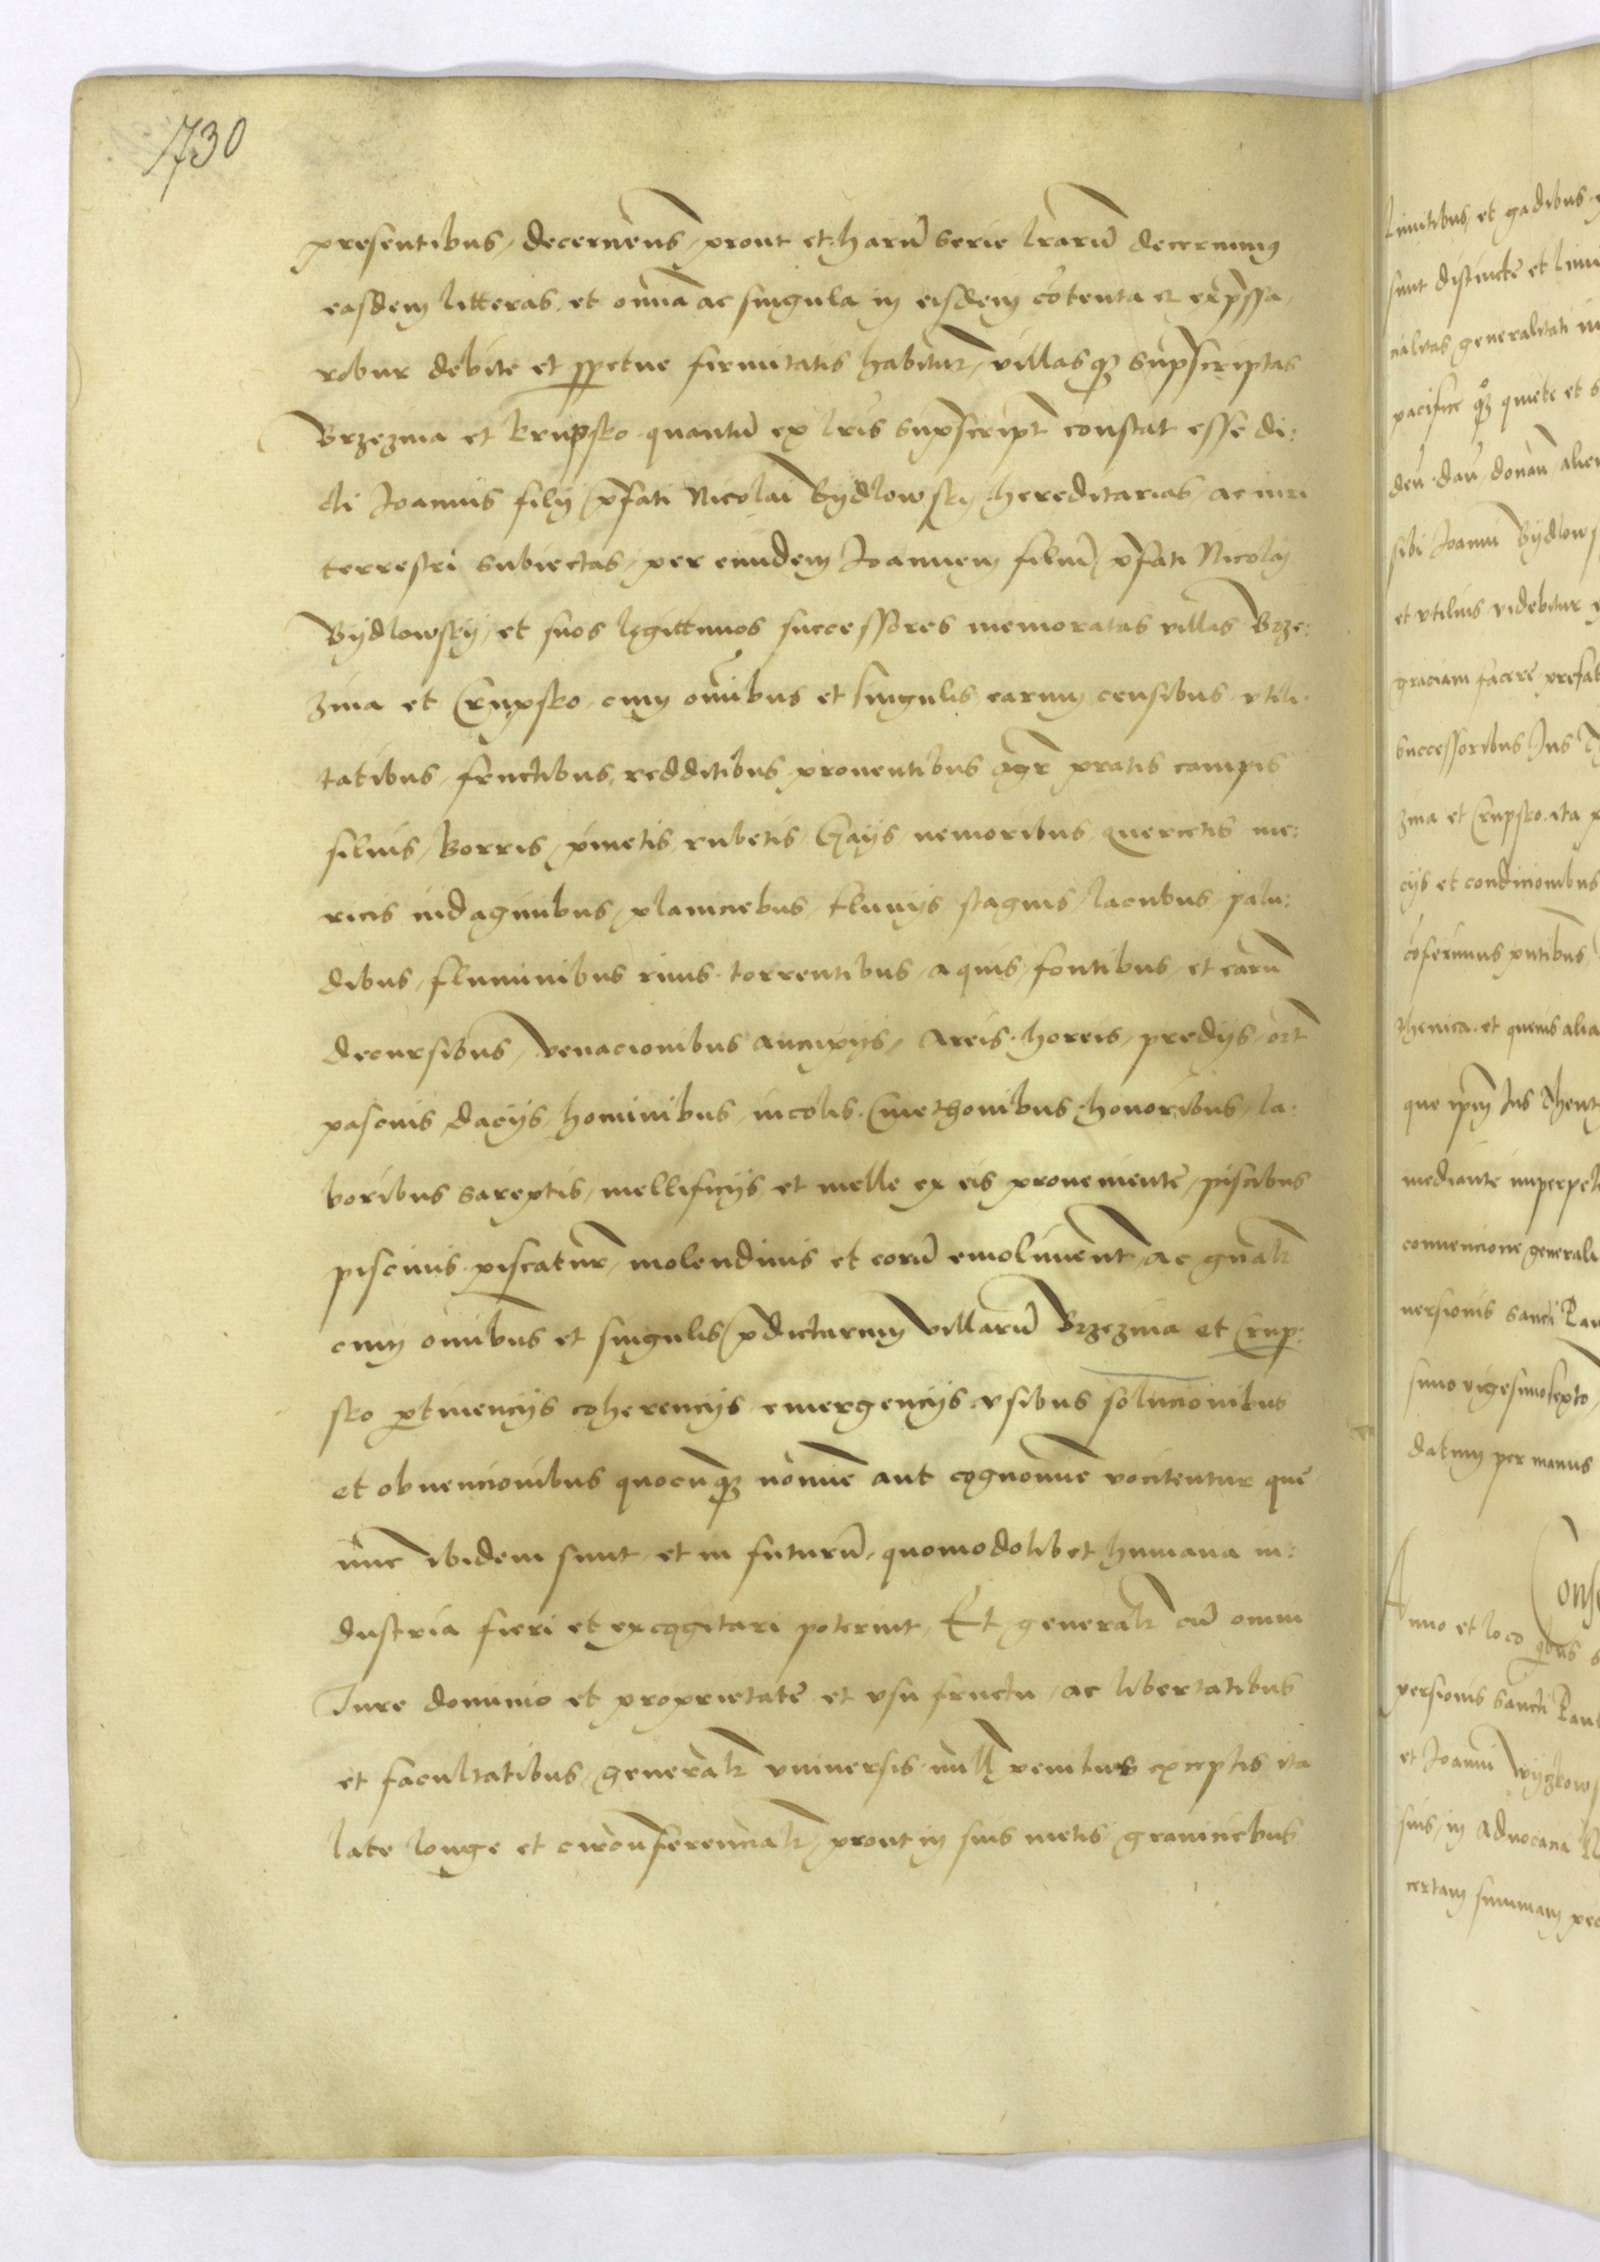 1730
presentibus, decernens, prout et harũ serie lrarũ decernimus
easdem litteras, et om̃ia ac singula in eisdem cõtenta et exp̃ssa,
robur debite et perpetue firmitatis habitur, villasq3 sup̃scriptas
Brzezina et krupsko quantũ ex lris sup̃script constat esse di:
cti Joannis filij p̃fati Nicolai Bydlowskij hereditarias, ac iuri
terrestri subiectas, per eundem Joannem filiũ p̃fati Nicolaj
Bijdlowskij, et suos legittimos successores memoratas villas Brze:
zina et Crupsko, cum om̃ibus et singulis earum censibus vtili:
tatibus, fructibus, redditibus prouentibus agr̃ pratis campis
siluis, Borris, pinetis, rubetis, Gayis nemoribus quercetis me:
ricis indaginibus, planiciebus, fluuijs stagnis, lacubus palu:
dibus, fluminibus riuis torrentibus, aquis, fontibus, et earũ
decursibus, venacionibus aucupijs, Areis, horeis, predijs, ort
pascuis dacijs, hominibus, incolis Cmethonibus, honoribus, la:
boribus sareptis, mellificijs, et melle ex eis proueniente, piscibus
piscinis piscatur, molendinis et eorũ emoliment, ac gñalr
cum om̃ibus et singulis p̃dictarum villarũ Brzezina et Crup:
sko p̱tinencijs coherencijs emergencijs vsibus solucionibus
et obuencionibus quocũq3 nomine aut cognomine vocitentur que
nunc ibidem sunt, et in futurũ, quomodolibet humana in:
dustria fieri et excogitari poterint, Et generalr cũ omni
Jure dominio et proprietate et vsu fructu, ac libertatibus
et facultatibus, generalr vniuersis, null penitus exceptis ita
late longe et circũferencialr, prout in suis metis, granicebus
limitibus, et gadibus
sunt distincte et limi
pacifice q3 quiete et
sibi Joanni Bydlows
et vtilius videbitur
graciam facere prefat
successoribus Jus
zina et Crupsko, ita
cijs et condicionibus
cõferimus
thenica, et queuis alia
mediante imperpet
conuencione generali
uersionis sancti Pau
simo vigesimosexto,
datum per manus
Anno et loco quibus
uersionis sancti Pau
et Joanni
certam summam